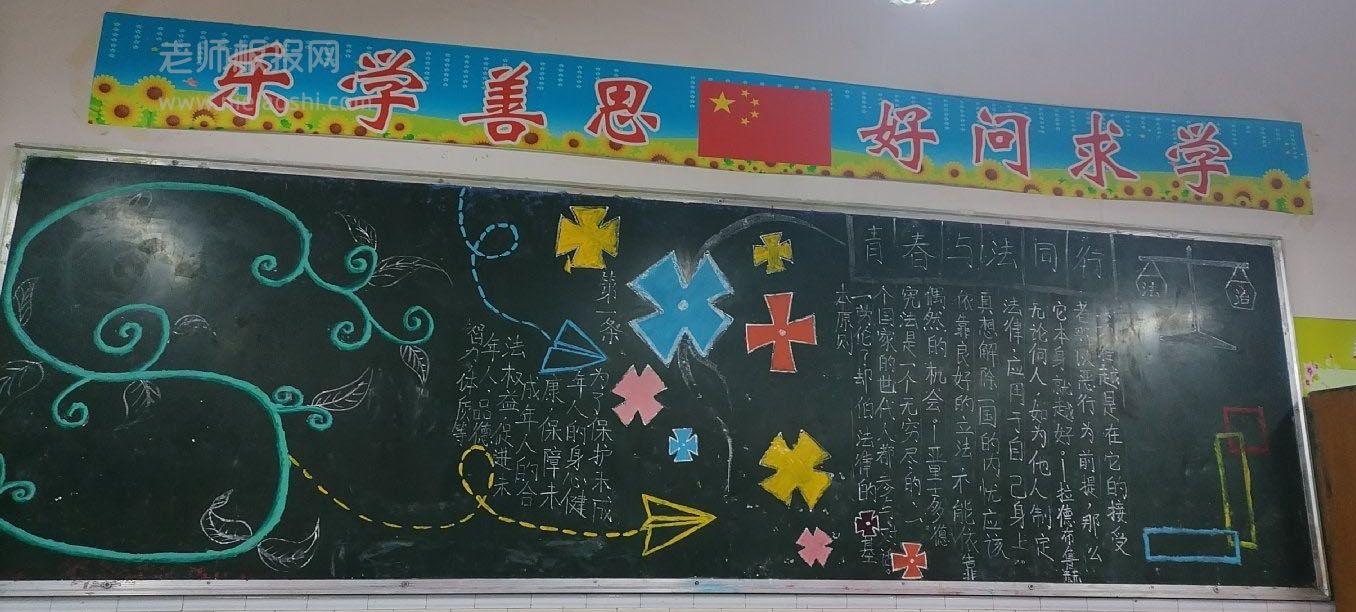 老师板报网
乐学善思 好问求学
青春与法同行
法 治
越是在它的接受
以恶行为前提,那么
它本身就越好。—拉德布鲁赫
无论何人,如为他人制定
法律,应用于自己身上。
真想解除一国的内忧应该
依靠良好的立法,不能依靠
偶然的机会。—亚里多德
宪法是一个无穷尽的、一
个国家的世代人都
法律的基
本原则
第一条
为了保护未成
年人的身心健
康,保障未
成年人的合
法权益促进未
年人 品德
智力体质等